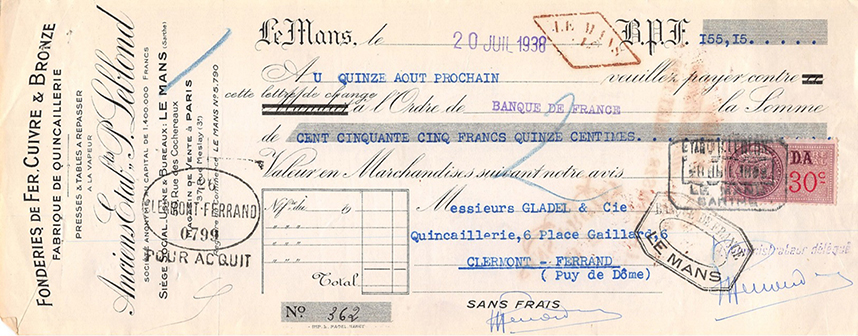 FONDERIES DE FER, CUIVRE & BRONZE
FABRIQUE DE QUINCAILLERIE
PRESSES & TABLES A REPASSER
A LA VAPEUR
Anciens Etabts P. Leblond
SOCIÉTÉ ANONYME AU CAPITAL DE 1.400.000 FRANCS
SIÈGE SOCIAL, USINE & BUREAUX: LE MANS (Sarthe)
Rue des Cochereaux
MAGASIN DE VENTE à PARIS
37, Rue Meslay (3e)
Commerce LE MANS No 5.790
Le Mans, le 20 JUIL 1938 B.P.F. 155,15.....
LE MANS
AU QUINZE AOUT PROCHAIN veuillez payer contre
cette lettre de change à l'Ordre de BANQUE DE FRANCE la Somme
de CENT CINQUANTE CINQ FRANCS QUINZE CENTIMES...
Valeur en Marchandises suivant notre avis
DA
30c
CLERMONT-FERRAND
0799
POUR ACQUIT
No/ du 19
Total
Messieurs GLADEL & Cie
Quincaillerie, 6 Place Gaillard, 6
CLERMONT - FERRAND
(Puy de Dôme)
BANQUE DE FRANCE
LE MANS
LE MANS
SARTHE
administrateur délégué
SANS FRAIS
No 362